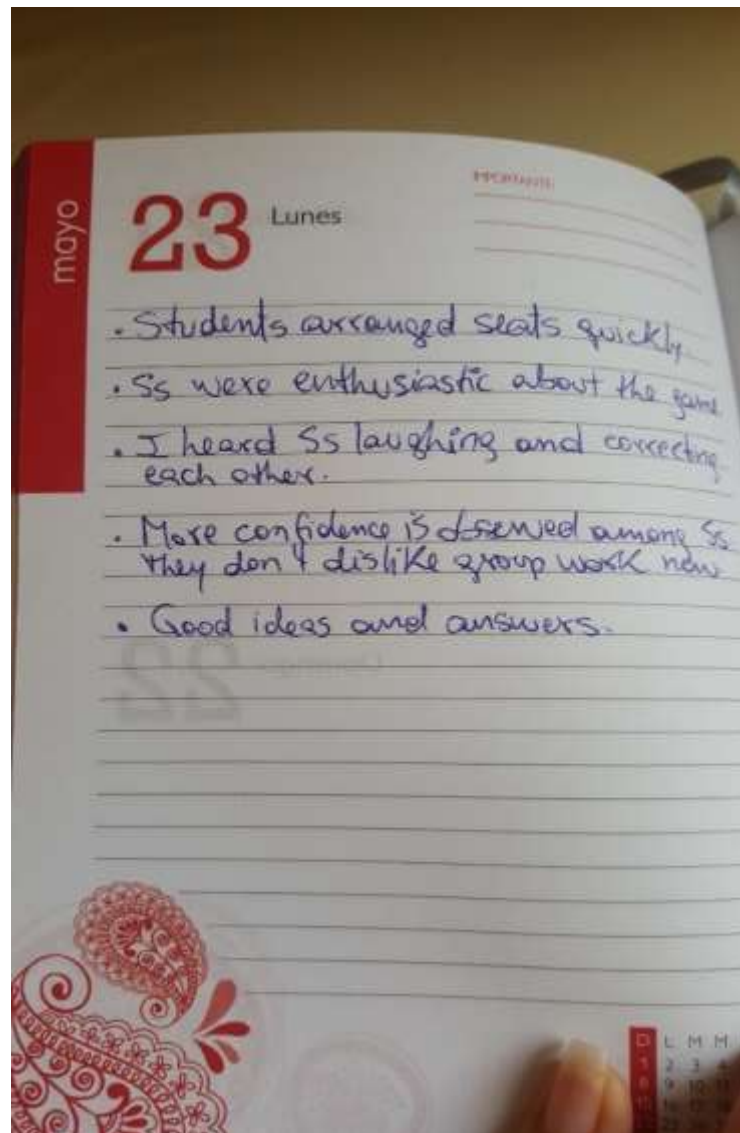 mayo
23 Lunes
IMPORTANTE
. Students arranged seats quickly.
. Ss were enthusiastic about the game
. I heard Ss laughing and correcting
each other.
. More confidence is observed among Ss
they don't dislike group work now
. Good ideas and answers.
22
L M M
2 3 4
9 10